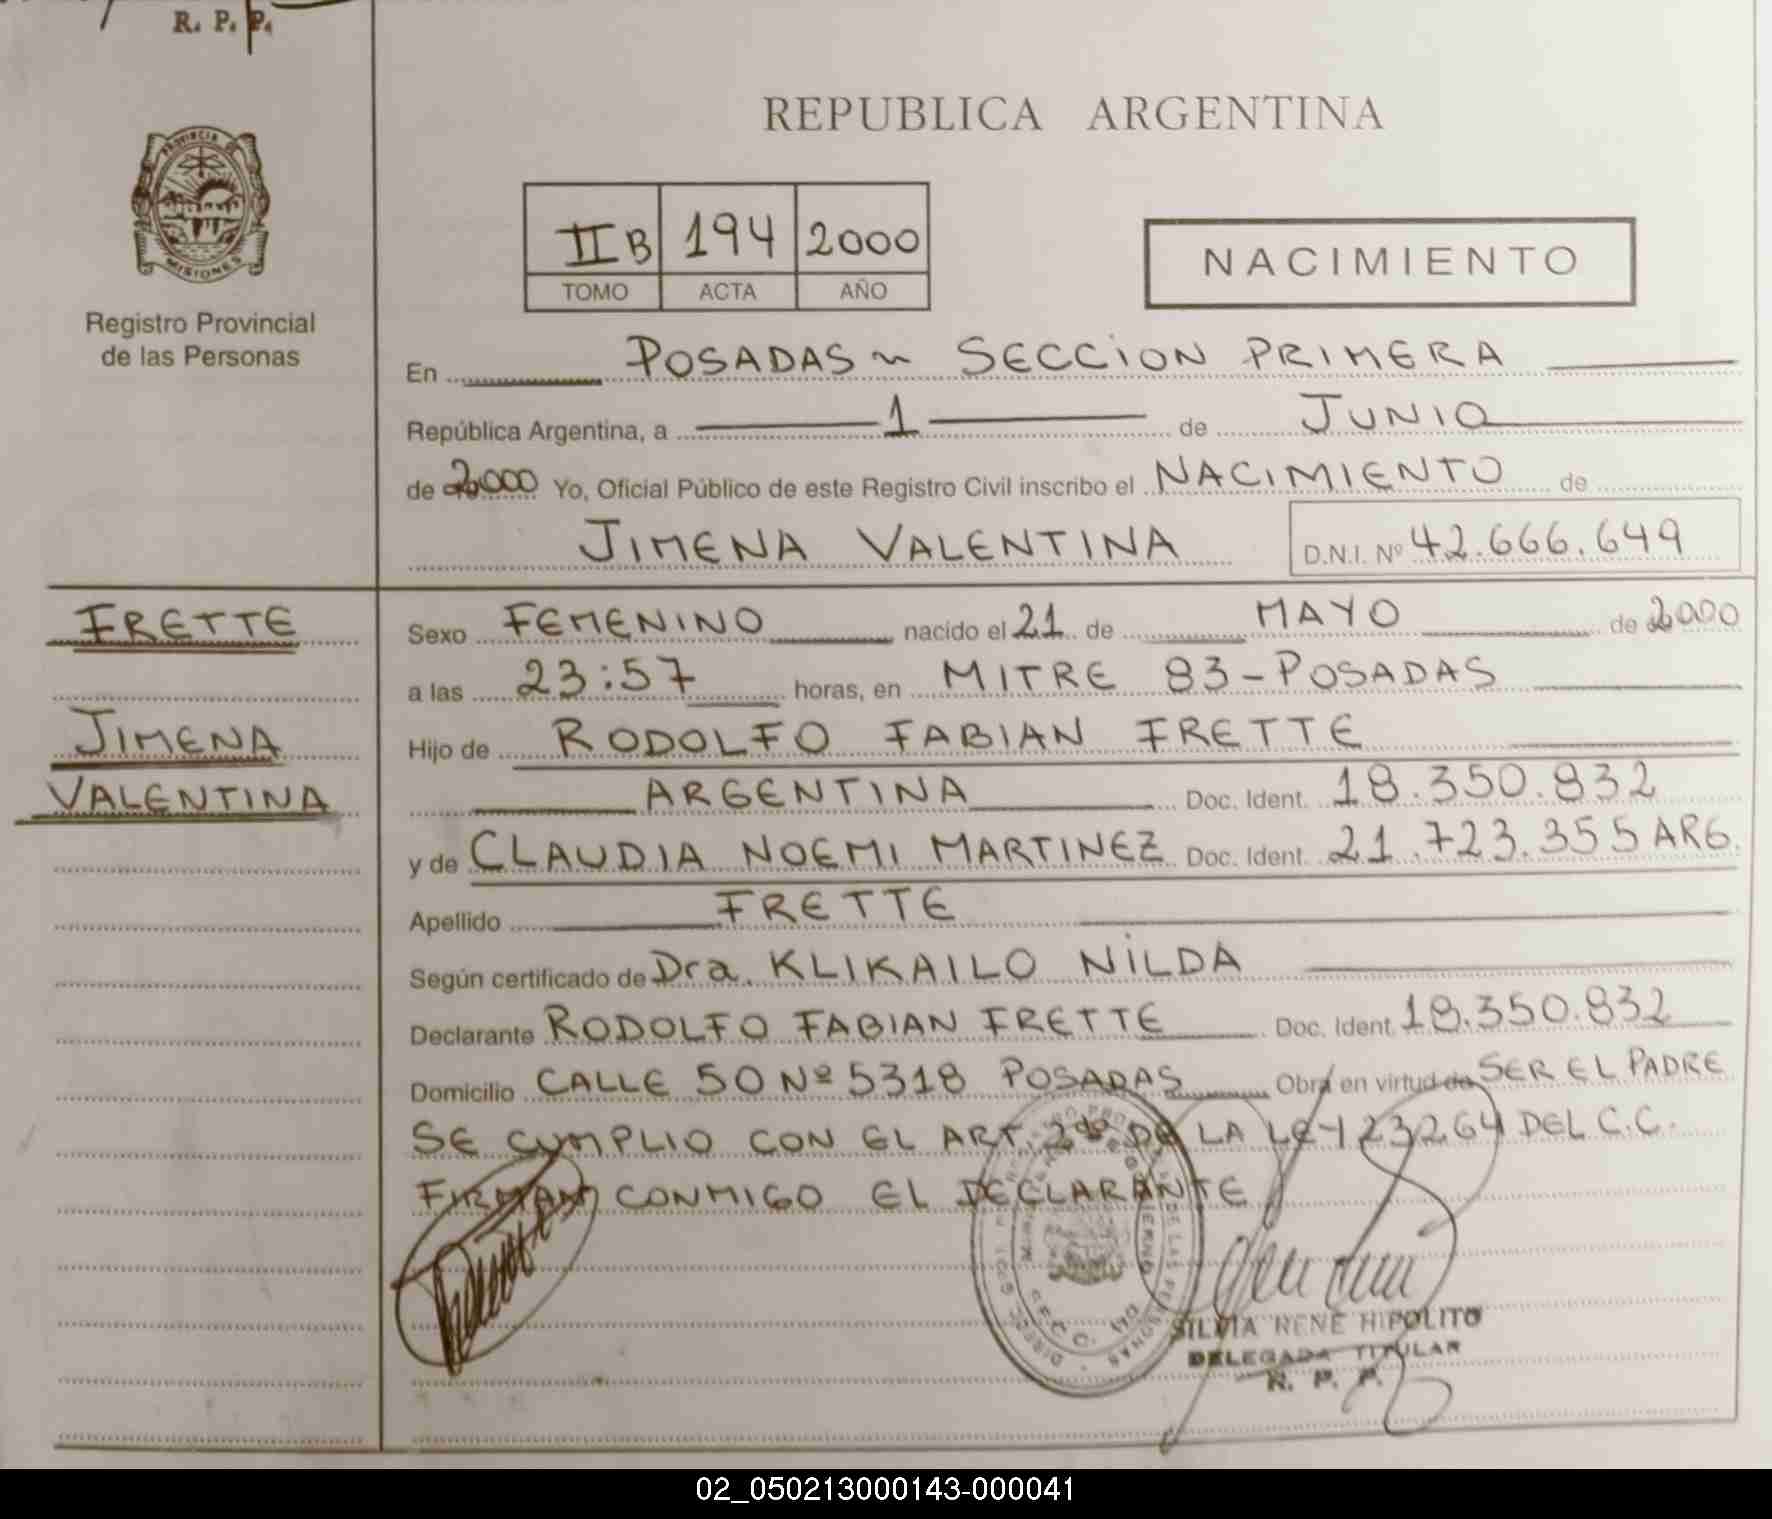 R. P. P.
PROVINCIA DE
MISIONES
Registro Provincial
de las Personas
REPUBLICA ARGENTINA
II B 194 2000
TOMO ACTA AÑO
NACIMIENTO
En POSADAS ~ SECCION PRIMERA
República Argentina, a 1 de JUNIO
de 2000 Yo, Oficial Público de este Registro Civil inscribo el NACIMIENTO de
JIMENA VALENTINA D.N.I. Nº 42.666.649
FRETTE
JIMENA
VALENTINA
Sexo FEMENINO nacido el 21 de MAYO de 2000
a las 23:57 horas, en MITRE 83-POSADAS
Hijo de RODOLFO FABIAN FRETTE
ARGENTINA Doc. Ident. 18.350.832
y de CLAUDIA NOEMI MARTINEZ Doc. Ident. 21.723.355 ARG.
Apellido FRETTE
Según certificado de Dra. KLIKAILO NILDA
Declarante RODOLFO FABIAN FRETTE Doc. Ident. 18.350.832
Domicilio CALLE 50 Nº 5318 POSADAS Obra en virtud de SER EL PADRE
SE CUMPLIO CON EL ART. 2do DE LA LEY 23264 DEL C.C.
FIRMAN CONMIGO EL DECLARANTE
SILVIA RENE HIPOLITO
DELEGADA TITULAR
R. P. P.
02_050213000143-000041